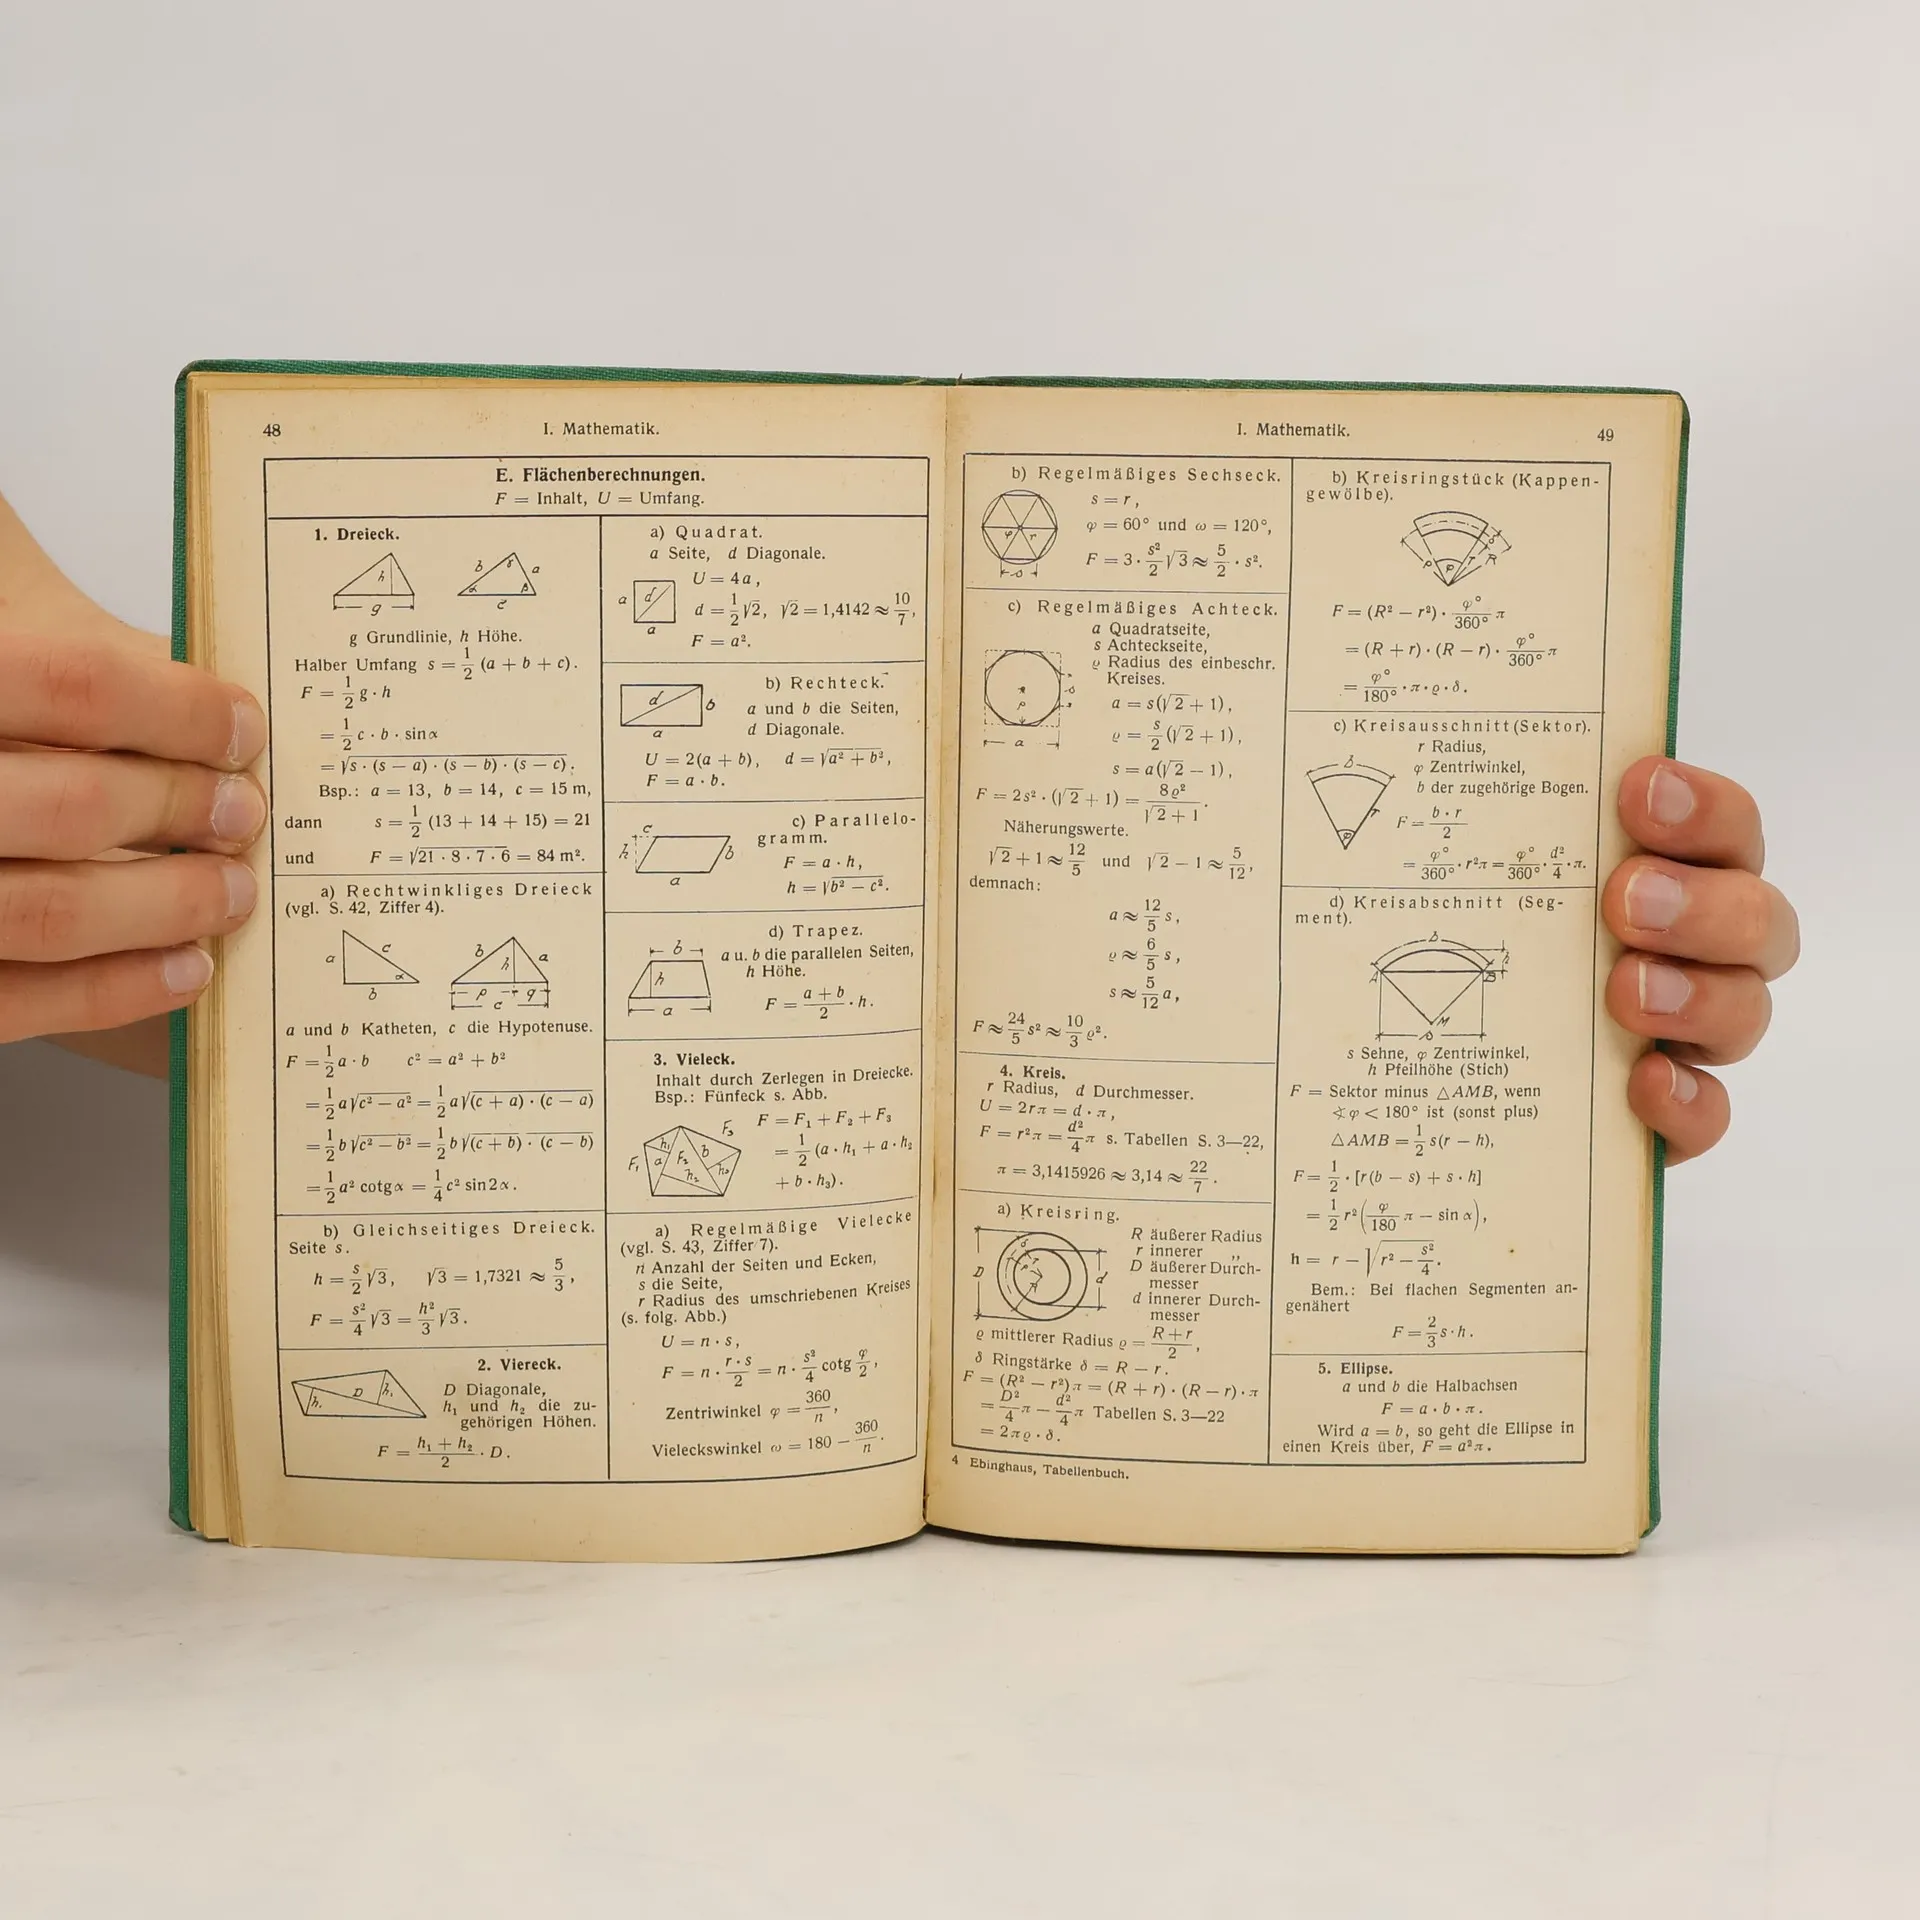 48
I. Mathematik.
E. Flächenberechnungen.
F = Inhalt, U = Umfang.
1. Dreieck.
h
g
b γ a
α β
c
g Grundlinie, h Höhe.
Halber Umfang s = 1/2 (a + b + c).
F = 1/2 g · h
= 1/2 c · b · sin α
= √s · (s − a) · (s − b) · (s − c).
Bsp.: a = 13, b = 14, c = 15 m,
dann s = 1/2 (13 + 14 + 15) = 21
und F = √21 · 8 · 7 · 6 = 84 m².
a) Rechtwinkliges Dreieck
(vgl. S. 42, Ziffer 4).
a c α
b
b h a
p q
c
a und b Katheten, c die Hypotenuse.
F = 1/2 a · b c² = a² + b²
= 1/2 a √c² − a² = 1/2 a √(c + a) · (c − a)
= 1/2 b √c² − b² = 1/2 b √(c + b) · (c − b)
= 1/2 a² cotg α = 1/4 c² sin 2α.
b) Gleichseitiges Dreieck.
Seite s.
h = s/2 √3, √3 = 1,7321 ≈ 5/3,
F = s²/4 √3 = h²/3 √3.
2. Viereck.
D
D Diagonale,
h₁ und h₂ die zu-
gehörigen Höhen.
F = h₁ + h₂/2 · D.
a) Quadrat.
a Seite, d Diagonale.
a d
a
U = 4a,
d = 1/2 √2, √2 = 1,4142 ≈ 10/7,
F = a².
b) Rechteck.
d b
a
a und b die Seiten,
d Diagonale.
U = 2(a + b), d = √a² + b²,
F = a · b.
c) Parallelo-
gramm.
c
h b
a
F = a · h,
h = √b² − c².
d) Trapez.
b
h
a
a u. b die parallelen Seiten,
h Höhe.
F = a + b/2 · h.
3. Vieleck.
Inhalt durch Zerlegen in Dreiecke.
Bsp.: Fünfeck s. Abb.
F₁ h₁ a F₂ b F₃
h₂ h₃
F = F₁ + F₂ + F₃
= 1/2 (a · h₁ + a · h₂
+ b · h₃).
a) Regelmäßige Vielecke
(vgl. S. 43, Ziffer 7).
n Anzahl der Seiten und Ecken,
s die Seite,
r Radius des umschriebenen Kreises
(s. folg. Abb.)
U = n · s,
F = n · r · s/2 = n · s²/4 cotg φ/2,
Zentriwinkel φ = 360/n,
Vieleckswinkel ω = 180 − 360/n.
I. Mathematik.
49
b) Regelmäßiges Sechseck.
φ r
s
s = r,
φ = 60° und ω = 120°,
F = 3 · s²/2 √3 ≈ 5/2 · s².
c) Regelmäßiges Achteck.
a Quadratseite,
s Achteckseite,
ϱ Radius des einbeschr.
Kreises.
ϱ s
a
a = s(√2 + 1),
ϱ = s/2 (√2 + 1),
s = a(√2 − 1),
F = 2s² · (√2 + 1) = 8ϱ²/√2 + 1.
Näherungswerte.
√2 + 1 ≈ 12/5 und √2 − 1 ≈ 5/12,
demnach:
a ≈ 12/5 s,
ϱ ≈ 6/5 s,
s ≈ 5/12 a,
F ≈ 24/5 s² ≈ 10/3 ϱ².
4. Kreis.
r Radius, d Durchmesser.
U = 2rπ = d · π,
F = r²π = d²/4 π s. Tabellen S. 3—22,
π = 3,1415926 ≈ 3,14 ≈ 22/7.
a) Kreisring.
D δ d
R äußerer Radius
r innerer „
D äußerer Durch-
messer
d innerer Durch-
messer
ϱ mittlerer Radius ϱ = R + r/2,
δ Ringstärke δ = R − r.
F = (R² − r²)π = (R + r) · (R − r) · π
= D²/4 π − d²/4 π Tabellen S. 3—22
= 2πϱ · δ.
4 Ebinghaus, Tabellenbuch.
b) Kreisringstück (Kappen-
gewölbe).
ϱ φ r R δ
F = (R² − r²) · φ°/360° π
= (R + r) · (R − r) · φ°/360° π
= φ°/180° · π · ϱ · δ.
c) Kreisausschnitt (Sektor).
r Radius,
φ Zentriwinkel,
b der zugehörige Bogen.
b
r
φ
F = b · r/2
= φ°/360° · r²π = φ°/360° · d²/4 · π.
d) Kreisabschnitt (Seg-
ment).
b
A B h
M
s
s Sehne, φ Zentriwinkel,
h Pfeilhöhe (Stich)
F = Sektor minus △AMB, wenn
∢ φ < 180° ist (sonst plus)
△AMB = 1/2 s(r − h),
F = 1/2 · [r(b − s) + s · h]
= 1/2 r² (φ/180 π − sin α),
h = r − √r² − s²/4.
Bem.: Bei flachen Segmenten an-
genähert
F = 2/3 s · h.
5. Ellipse.
a und b die Halbachsen
F = a · b · π.
Wird a = b, so geht die Ellipse in
einen Kreis über, F = a²π.